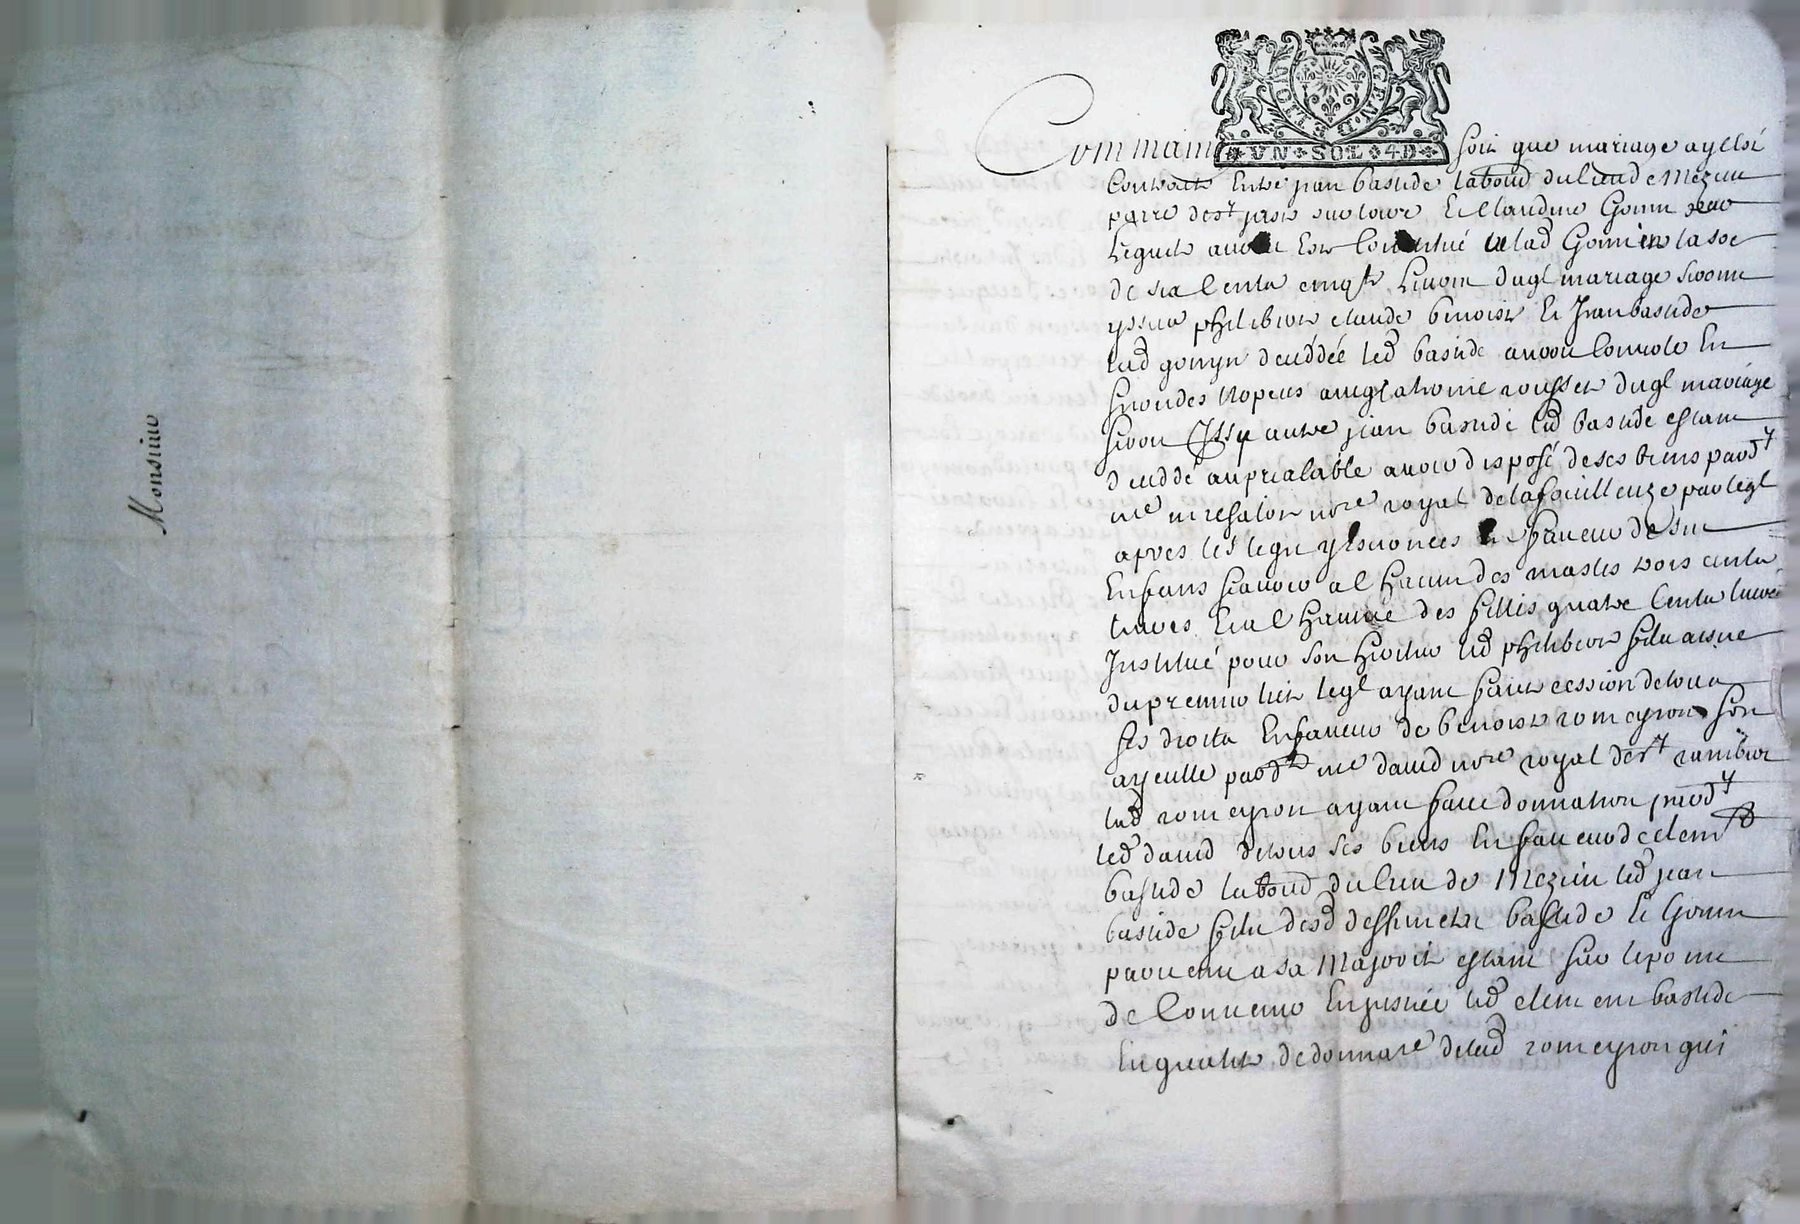 Monsieur
UN SOL 4D
Comme ainsy soit que mariage aye esté
Contracté Entre jean bastide laboud du lieu de Mezieu
parre de st just sur loire Et Claudine Gonin
Lequel avoit Este Constitué a lad Gonin la soe
de six Cents cinqte Livres duql mariage seroint
yssus philibert claude benoist Et Jean bastide
lad gonyn deceddée led bastide auroit Convolé En
secondes nopces avecq anthoine rousset duql mariage
seroit Issu autre jean bastide led bastide estant
deceddé au prealable avoir disposé de ses biens pard
me nore royal de lafouillouze par leql
apres les legtz y enoncés En faveur de ses
Enfans scavoir a Chacun des masles trois cents
livres Et a Chacune des filles quatre Cents livres
Institué pour son heritier led philibert fils aisné
du premier lict leql ayant faict cession de tous
ses droits En faveur de benoiste romeyron son
ayeulle pard me david nore royal de st rambert
lad romeyron ayant faict donnation pard
led david de tous ses biens En faveur de clemt
bastide laboud du lieu de Mezieu led jean
bastide fils desd deffunctz bastide Et Gonin
parvenu a sa Majorité estant sur le point
de Convenir En justice led clement bastide
En qualité de donnare de lad romeyron qui